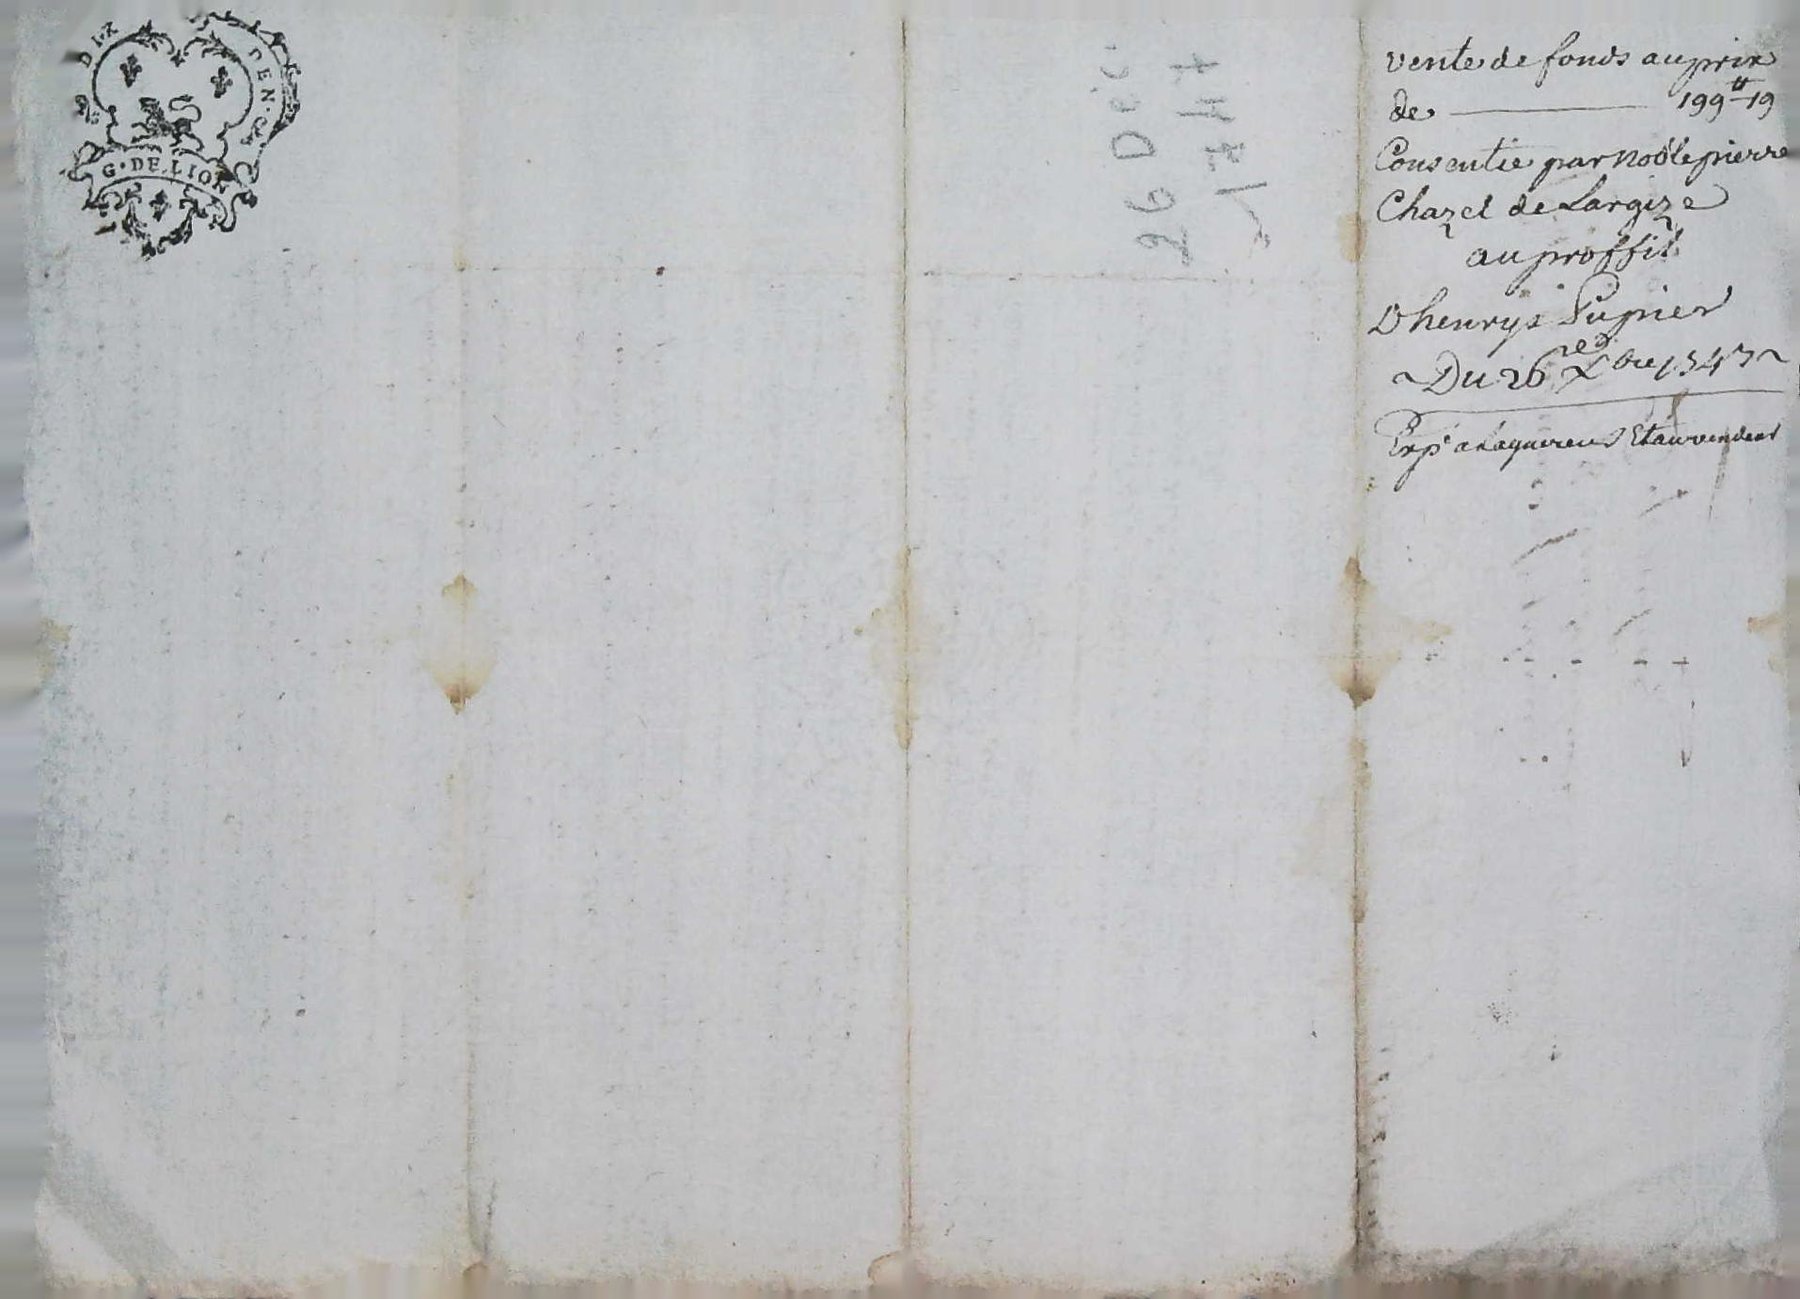 DIX DEN. CA
G. DE LION
26 Déc
vente de fonds au prix
de 199tt 19
Consentie par noble pierre
Chazel de Largize
au proffit
Dhenrys Pupier
Du 26 Xbre
Expé a Laquereur Et au vendeur